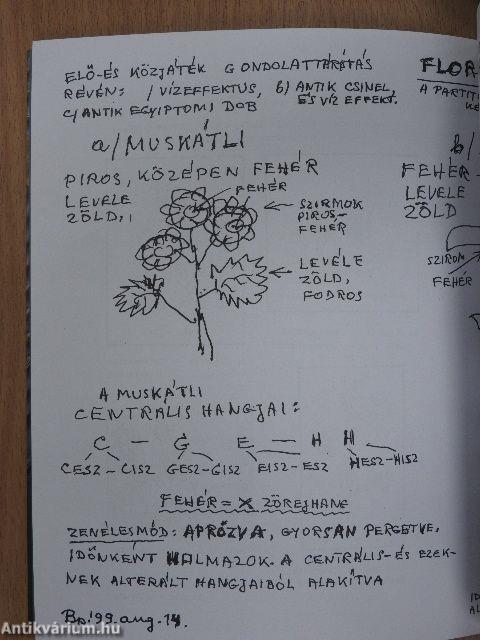 ELŐ-ÉS KÖZJÁTÉK GONDOLATTÁRÍTÁS
RÉVÉN: / VÍZEFFEKTUS, b) ANTIK CSINEL,
ÉS VÍZ EFFEKT.
c/ ANTIK EGYIPTOMI DOB
a/ MUSKÁTLI
PIROS, KÖZÉPEN FEHÉR
FEHÉR
LEVELE
ZÖLD,,
SZIRMOK
PIROS-
FEHÉR
LEVÉLE
ZÖLD,
FODROS
A MUSKÁTLI
CENTRÁLIS HANGJAI:
C — G E — H H
CESZ-CISZ GESZ-GISZ EISZ-ESZ HESZ-HISZ
FEHÉR = X ZÖREJHANG
ZENÉLÉSMÓD: APRÓZVA, GYORSAN PERGETVE,
IDŐNKÉNT HALMAZOK. A CENTRÁLIS-ÉS EZEK-
NEK ALTERÁLT HANGJAIBÓL ALAKÍTVA
Bp. '99. aug. 14.
FLOR
A PARTITI
b/
FEHÉR-
LEVELE
ZÖLD
SZIROM
FEHÉR
Antikvárium.hu